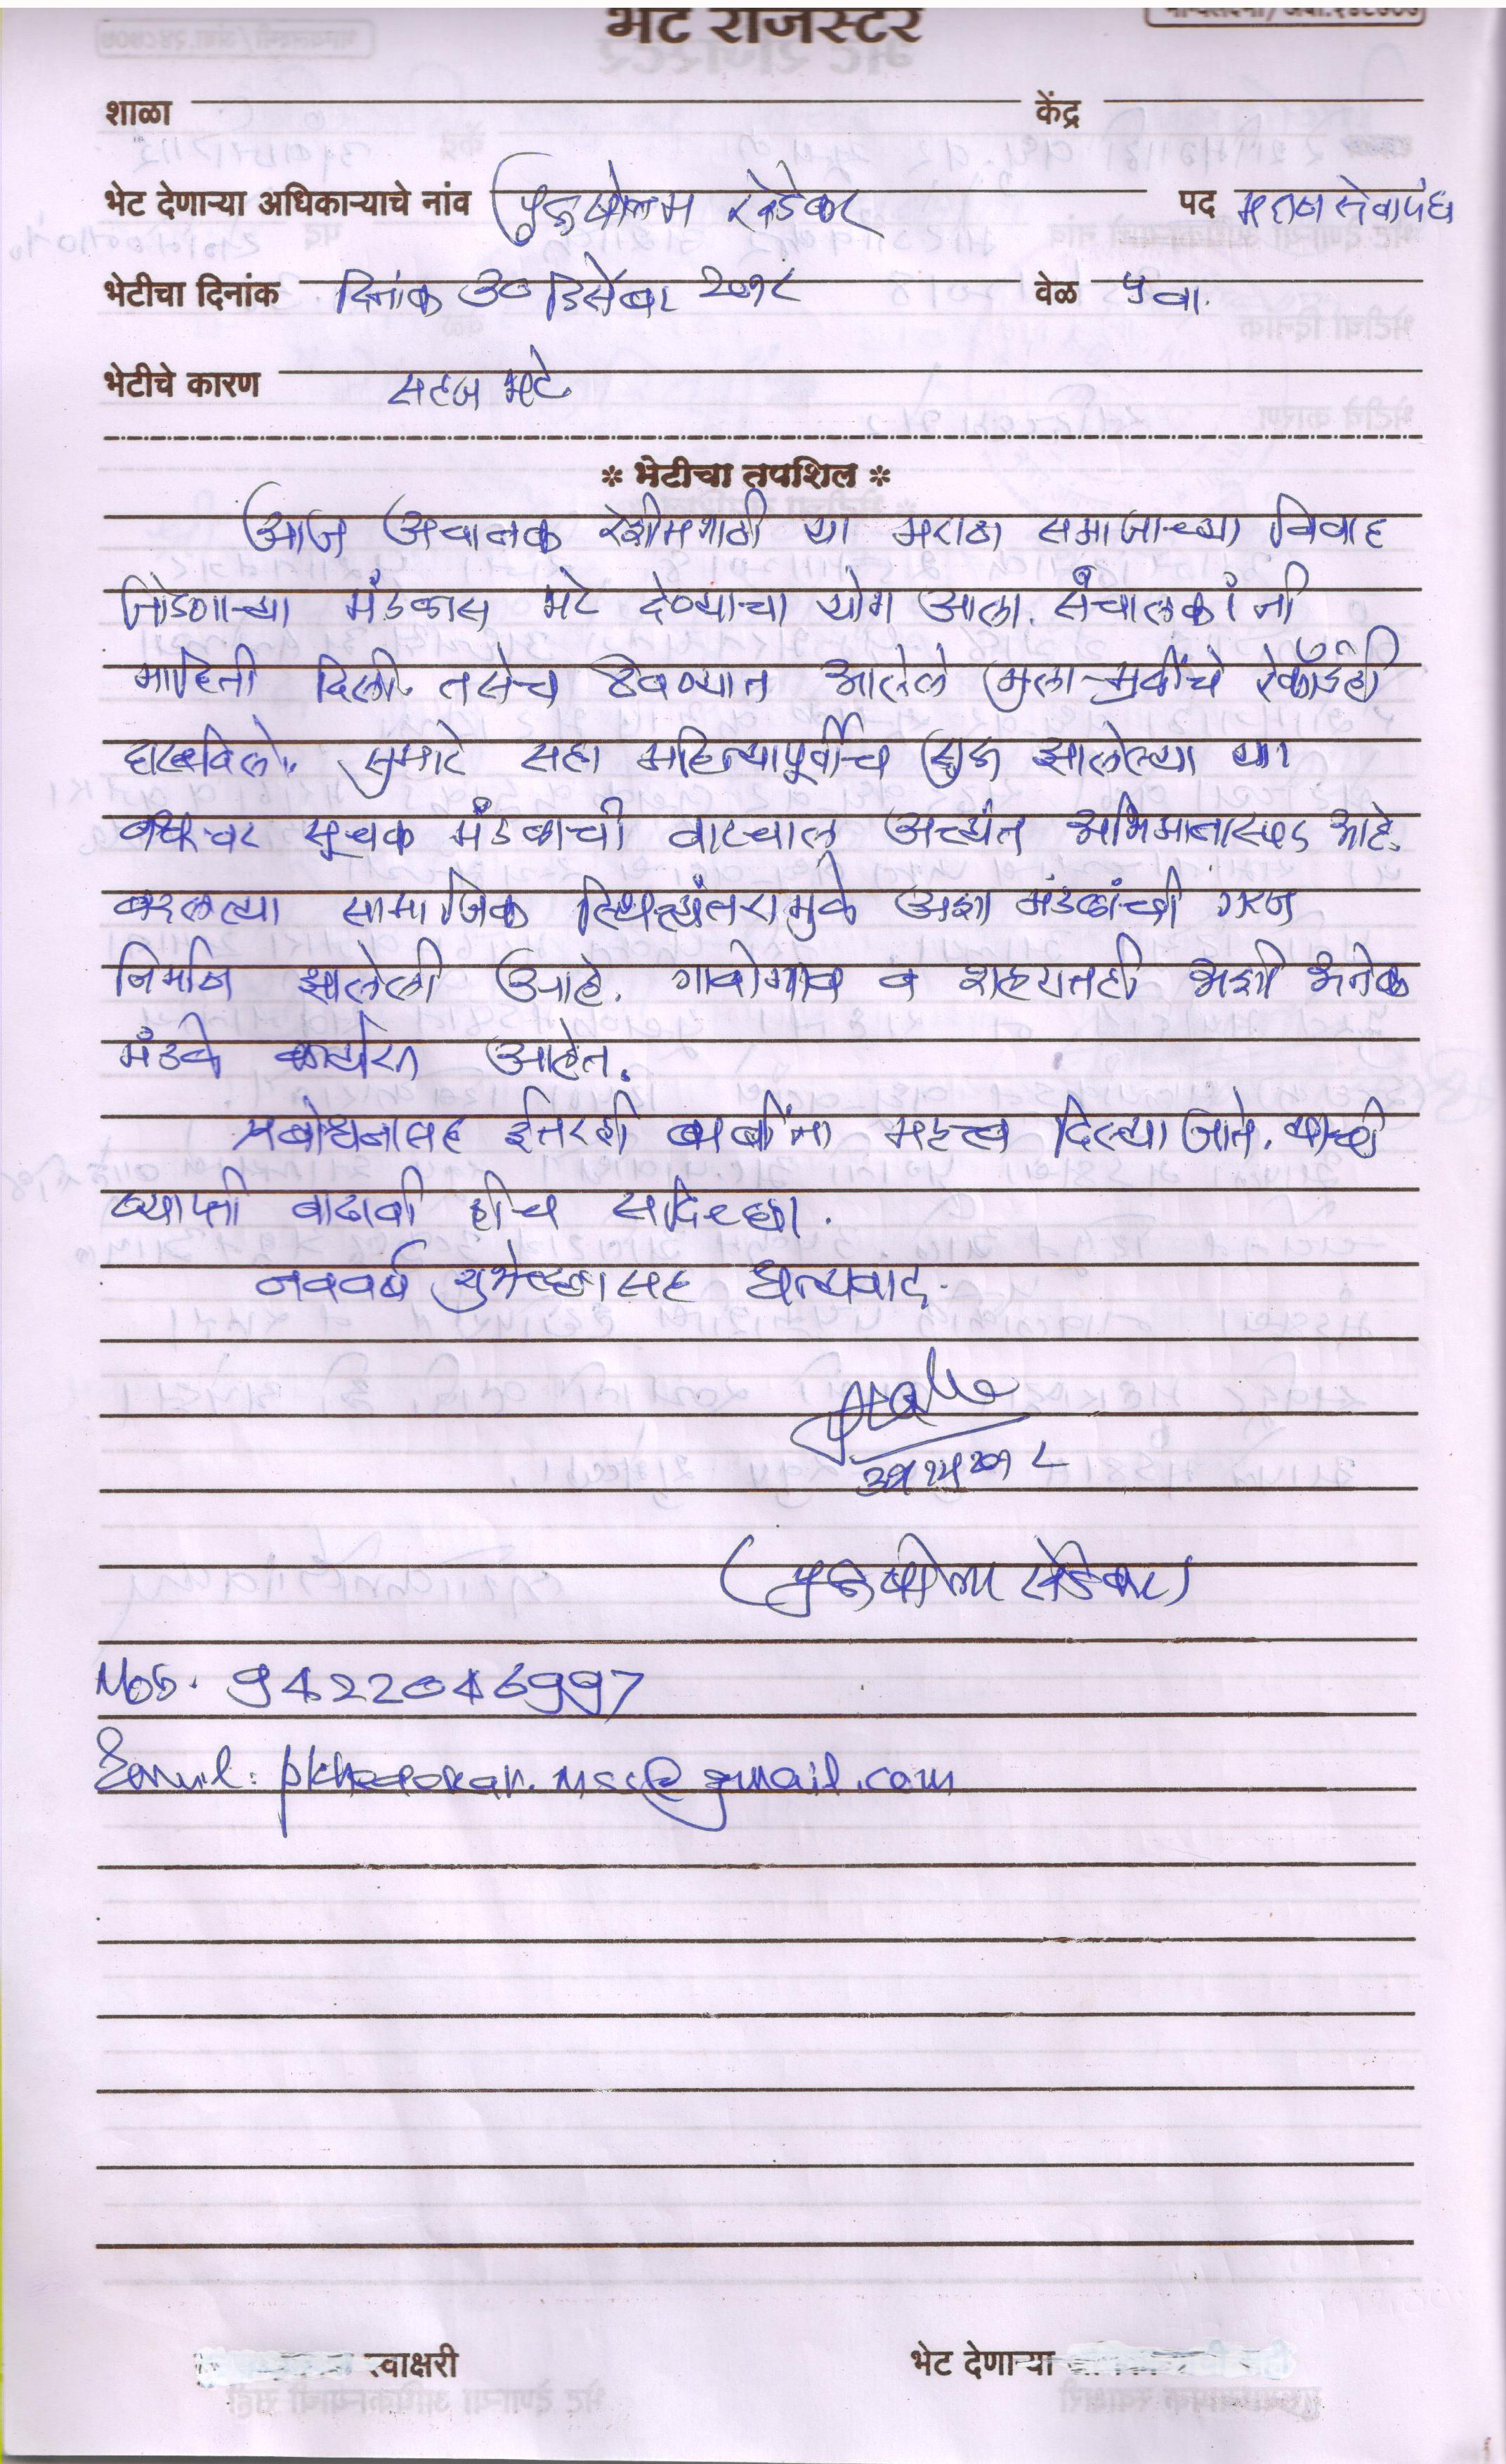 भेट रजिस्टर
शाळा केंद्र
भेट देणाऱ्या अधिकाऱ्याचे नांव पुरुषोत्तम खेडेकर पद मराठा सेवासंघ
भेटीचा दिनांक दिनांक ३० डिसेंबर २०१८ वेळ ५ वा.
भेटीचे कारण सहज भेट
* भेटीचा तपशिल *
आज अचानक रेशीमगाठी या मराठा समाजाच्या विवाह
जोडणाऱ्या मंडळास भेट देण्याचा योग आला. संचालकांनी
माहिती दिली. तसेच ठेवण्यात आलेले मुला-मुलींचे रेकॉर्डही
दाखविले. सुमारे सहा महिन्यापूर्वीच सुरू झालेल्या या
वधु-वर सूचक मंडळाची वाटचाल अत्यंत अभिमानास्पद आहे.
बदलत्या सामाजिक स्थित्यंतरामुळे अशा मंडळांची गरज
निर्माण झालेली आहे. गावोगाव व शहरातही अशी अनेक
मंडळे कार्यरत आहेत.
प्रबोधनासह इतरही बाबींना महत्त्व दिल्या जाते. याची
व्याप्ती वाढावी हीच सदिच्छा.
नववर्ष शुभेच्छासह धन्यवाद.
(पुरुषोत्तम खेडेकर)
Mob. 9422046997
Email: pkhedekar.mss@gmail.com
स्वाक्षरी भेट देणाऱ्या